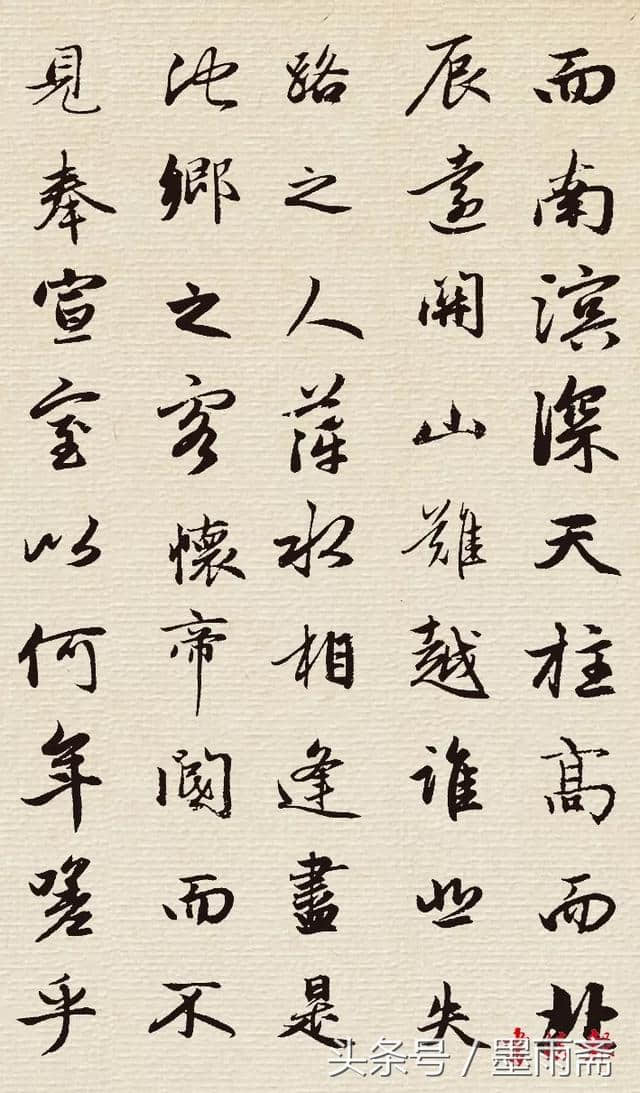 而南溟深天柱高而北
辰遠關山難越誰悲失
路之人萍水相逢盡是
他鄉之客懷帝閽而不
見奉宣室以何年嗟乎
头条号 / 墨雨斋